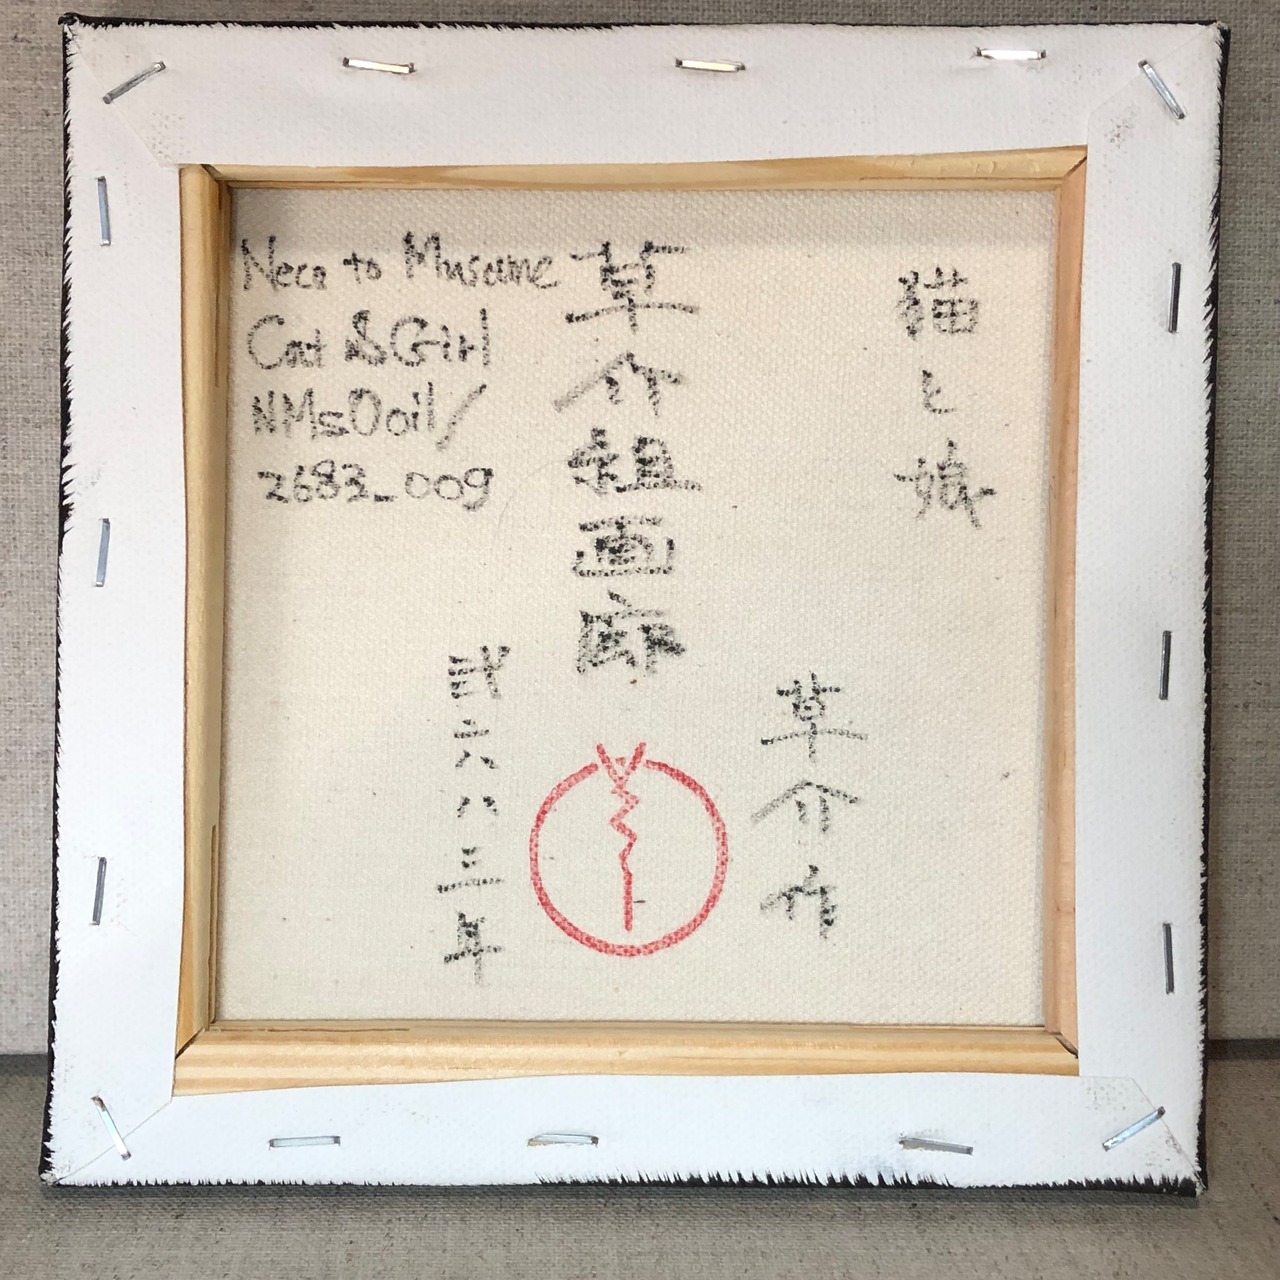 猫と娘
草介作
草介組画廊
弐六八三年
Neco to Musume
Cat & Girl
NMsOoil/
2683_009